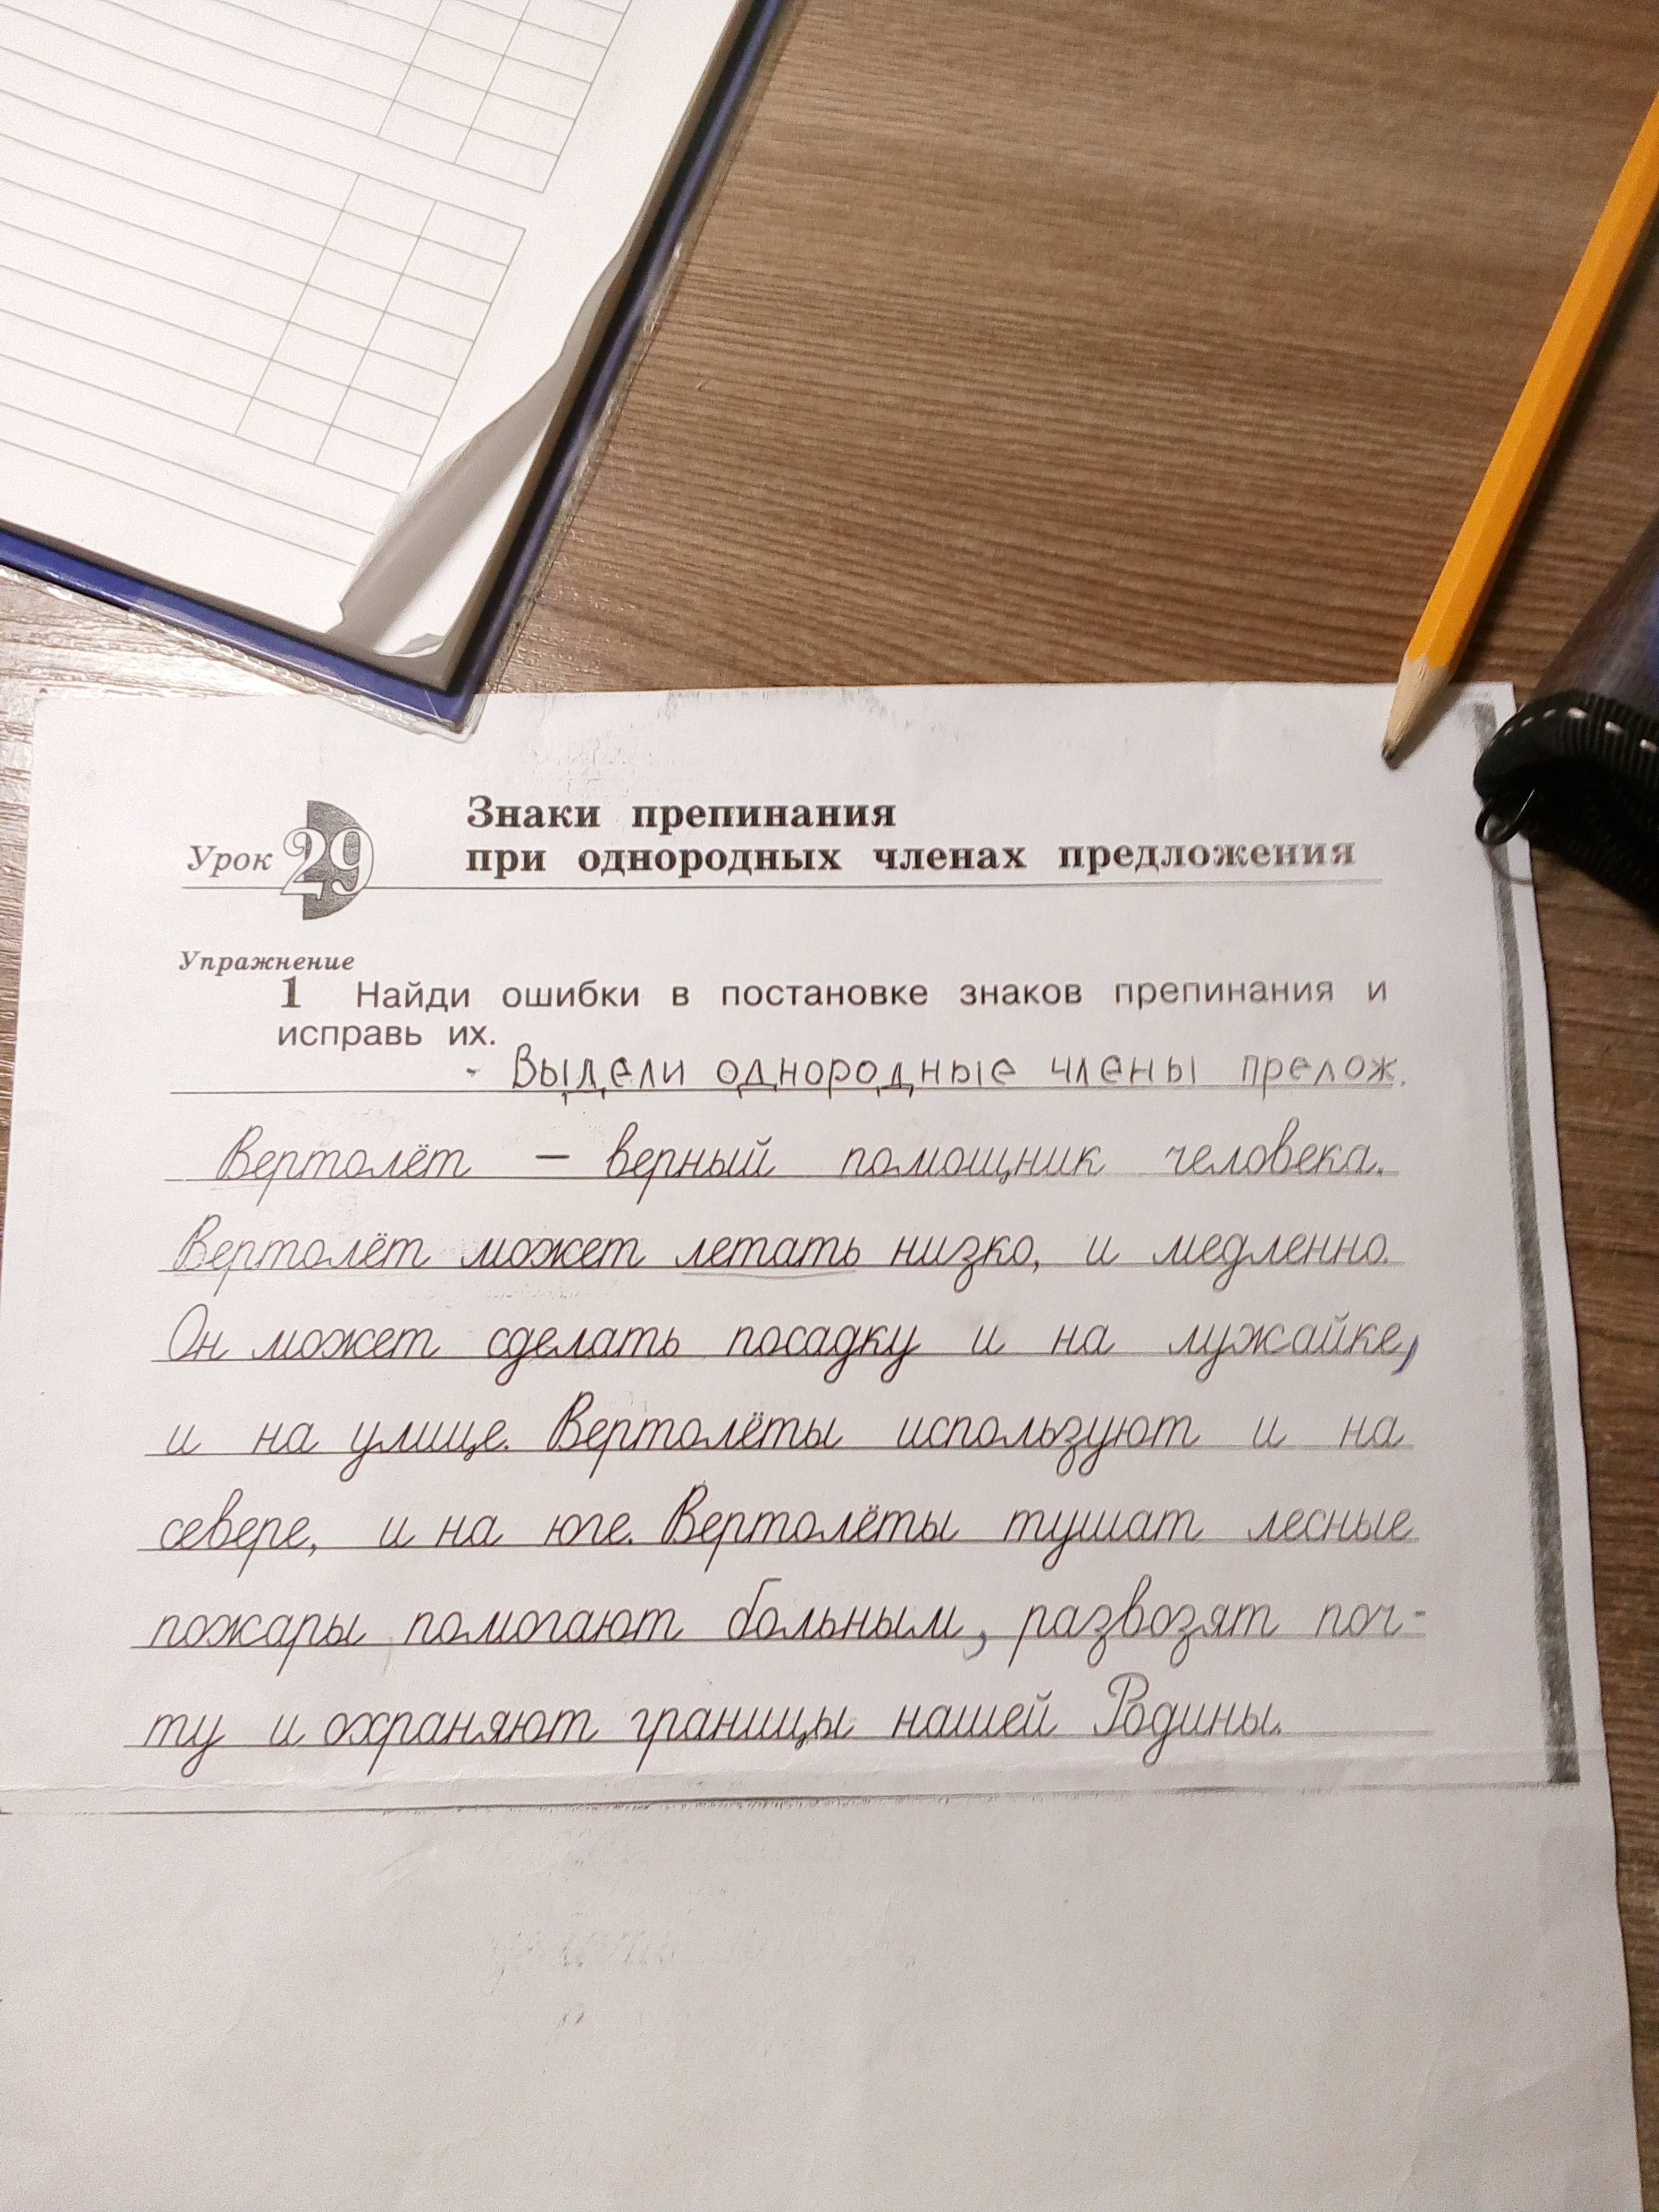 Урок 29
Знаки препинания
при однородных членах предложения
Упражнение
1 Найди ошибки в постановке знаков препинания и
исправь их.
- Выдели однородные члены прелож.
Вертолёт — верный помощник человека.
Вертолёт может летать низко, и медленно.
Он может сделать посадку и на лужайке,
и на улице. Вертолёты используют и на
севере, и на юге. Вертолёты тушат лесные
пожары помогают больным, развозят поч-
ту и охраняют границы нашей Родины.